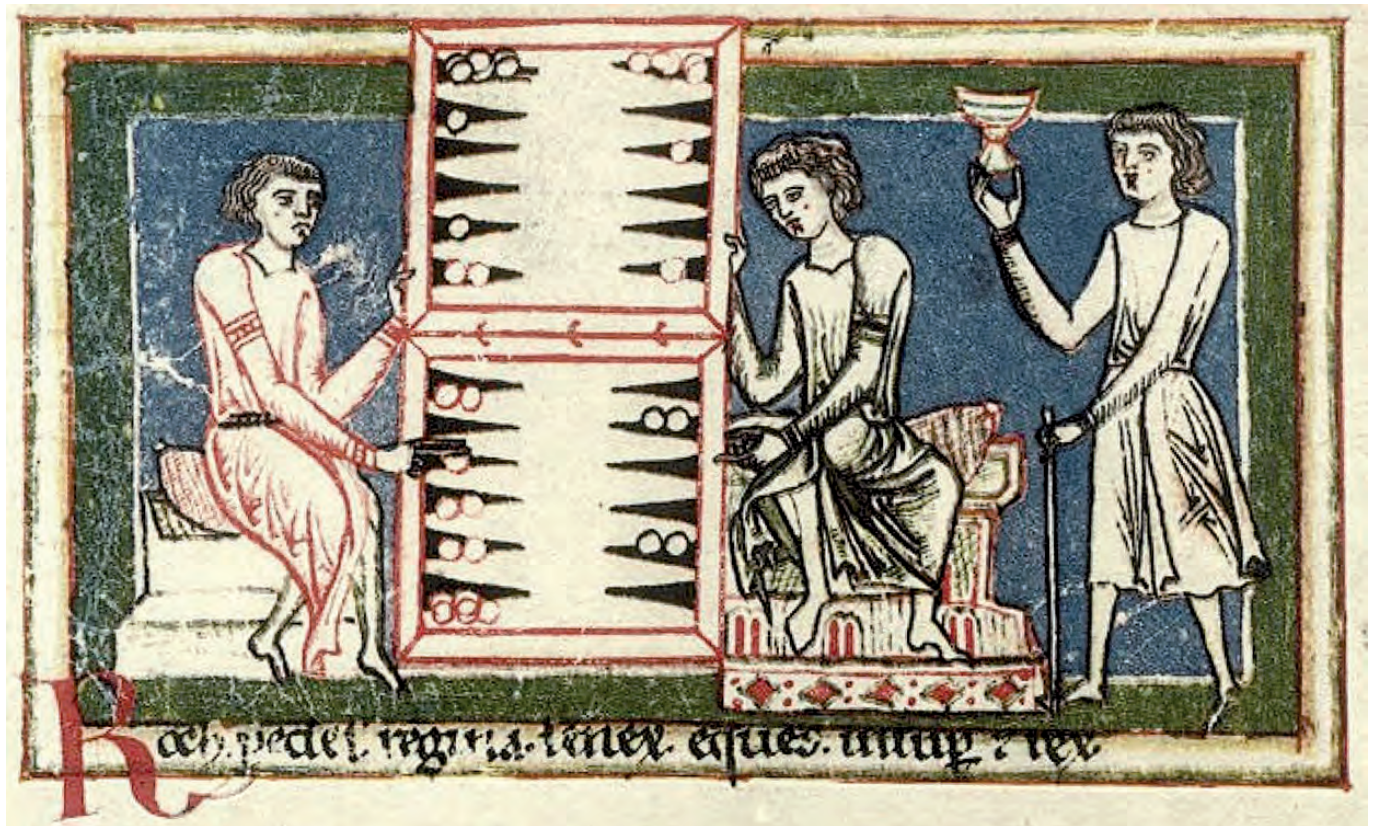 Roch. pedes. regina. senex. eques. insuꝑ ⁊ rex